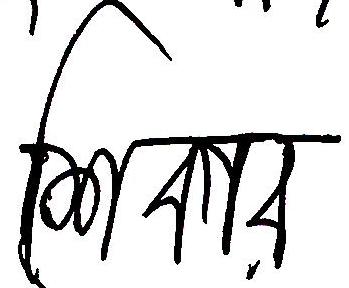 শিকার